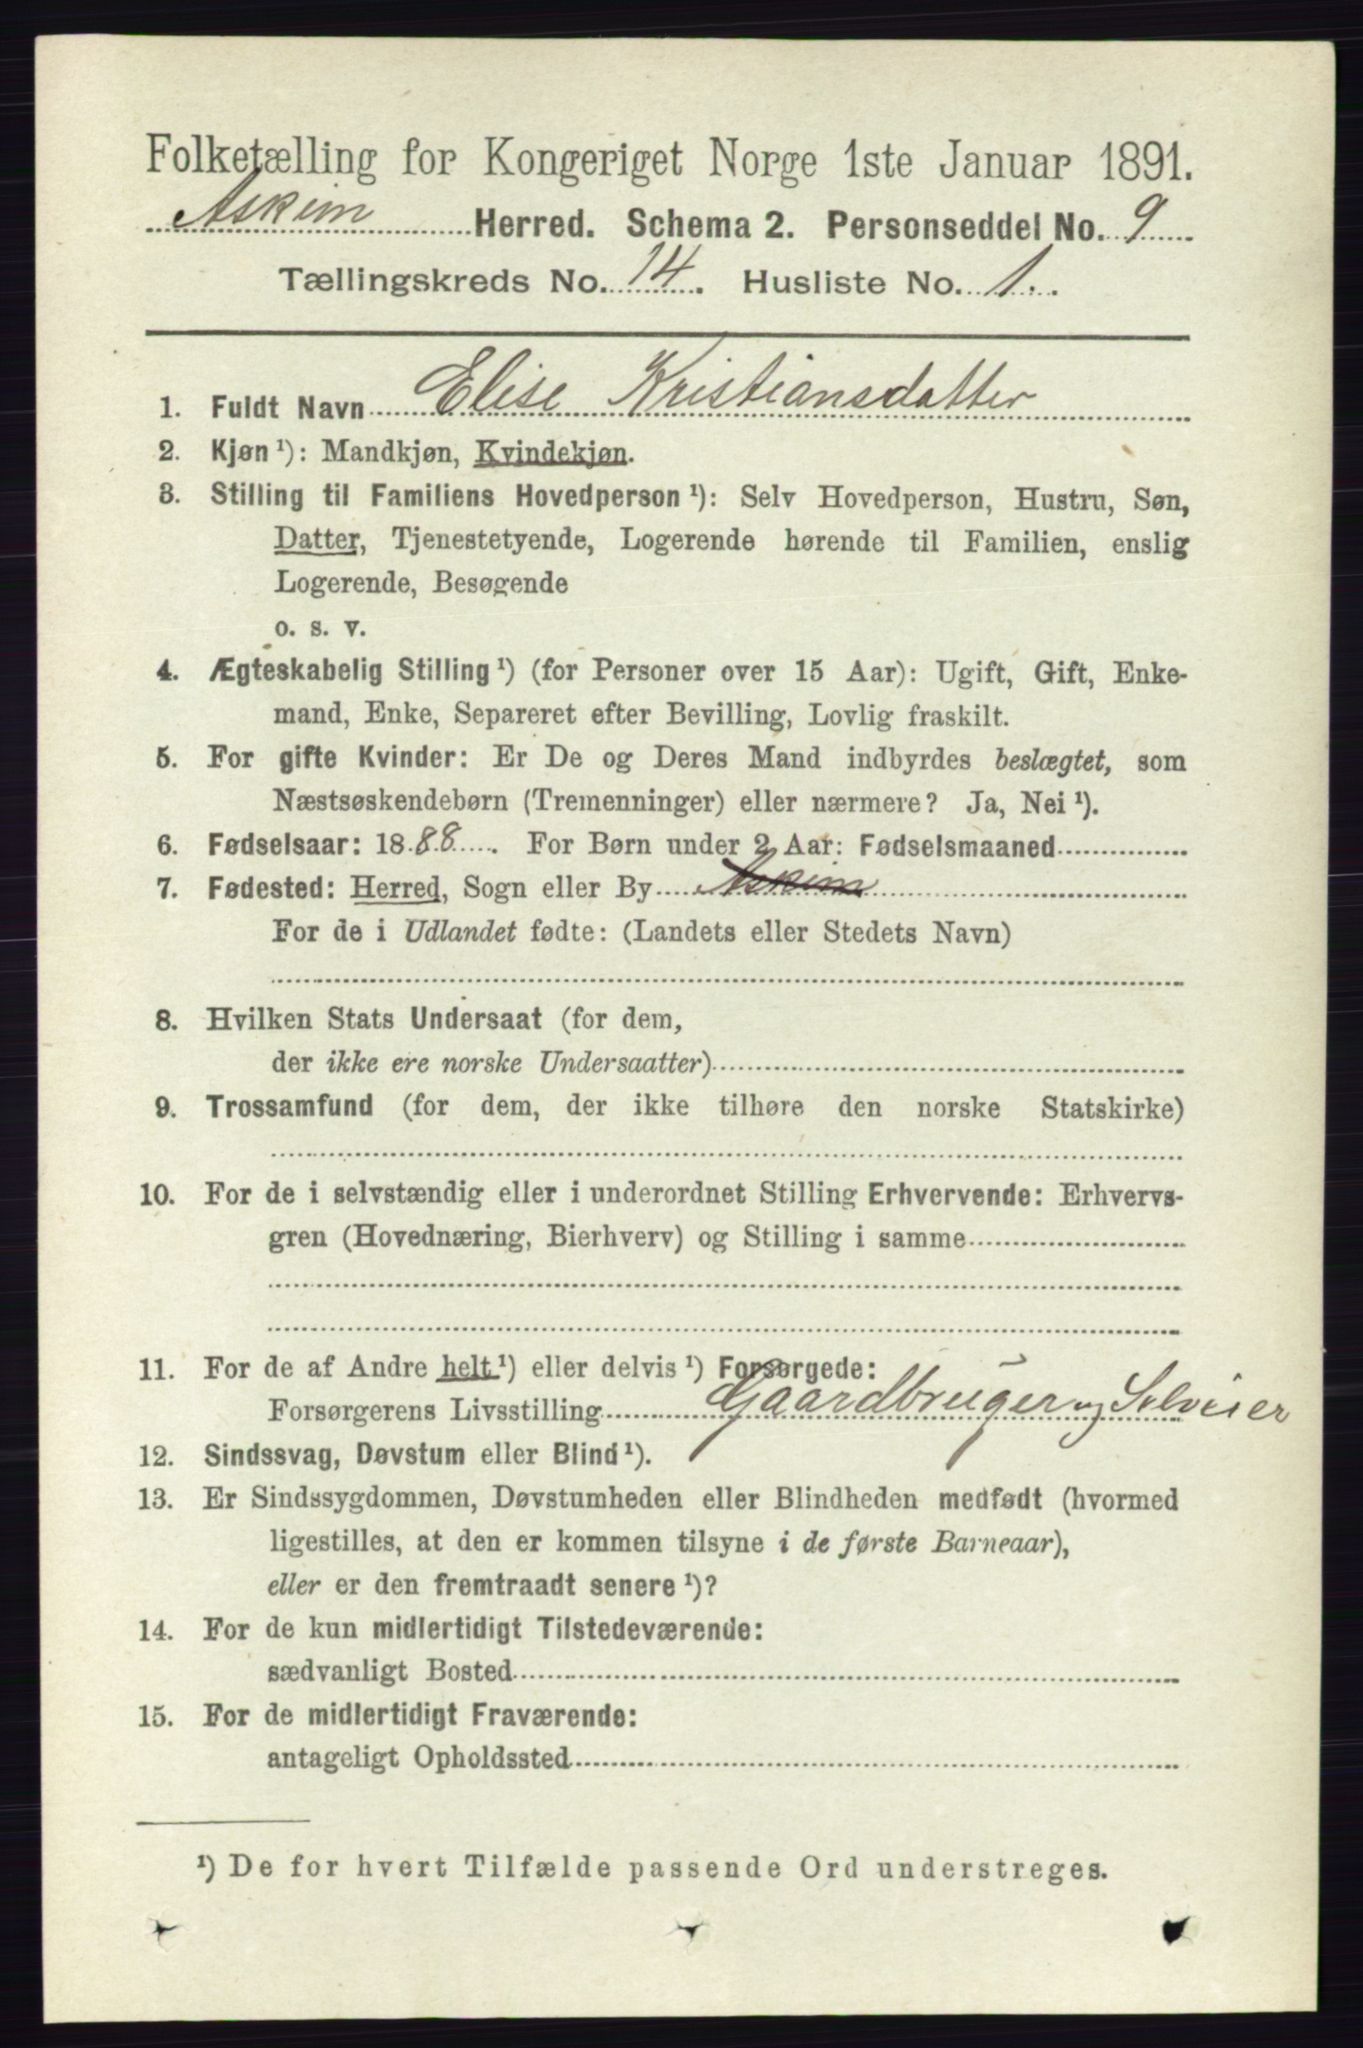 Folketælling for Kongeriget Norge 1ste Januar 1891.
Askim Herred. Schema 2. Personseddel No. 9
Tællingskreds No. 14. Husliste No. 1.
1. Fuldt Navn Elise Kristiansdatter
2. Kjøn¹): Mandkjøn, Kvindekjøn.
3. Stilling til Familiens Hovedperson¹): Selv Hovedperson, Hustru, Søn,
Datter, Tjenestetyende, Logerende hørende til Familien, enslig
Logerende, Besøgende
o. s. v.
4. Ægteskabelig Stilling¹) (for Personer over 15 Aar): Ugift, Gift, Enke-
mand, Enke, Separeret efter Bevilling, Lovlig fraskilt.
5. For gifte Kvinder: Er De og Deres Mand indbyrdes beslægtet, som
Næstsøskendebørn (Tremenninger) eller nærmere? Ja, Nei¹).
6. Fødselsaar: 1888. For Børn under 2 Aar: Fødselsmaaned
7. Fødested: Herred, Sogn eller By Askim
For de i Udlandet fødte: (Landets eller Stedets Navn)
8. Hvilken Stats Undersaat (for dem,
der ikke ere norske Undersaatter)
9. Trossamfund (for dem, der ikke tilhøre den norske Statskirke)
10. For de i selvstændig eller i underordnet Stilling Erhvervende: Erhvervs-
gren (Hovednæring, Bierhverv) og Stilling i samme
11. For de af Andre helt¹) eller delvis¹) Forsørgede:
Forsørgerens Livsstilling Gaardbruger og Selveier
12. Sindssvag, Døvstum eller Blind¹).
13. Er Sindssygdommen, Døvstumheden eller Blindheden medfødt (hvormed
ligestilles, at den er kommen tilsyne i de første Barneaar),
eller er den fremtraadt senere¹)?
14. For de kun midlertidigt Tilstedeværende:
sædvanligt Bosted
15. For de midlertidigt Fraværende:
antageligt Opholdssted
¹) De for hvert Tilfælde passende Ord understreges.